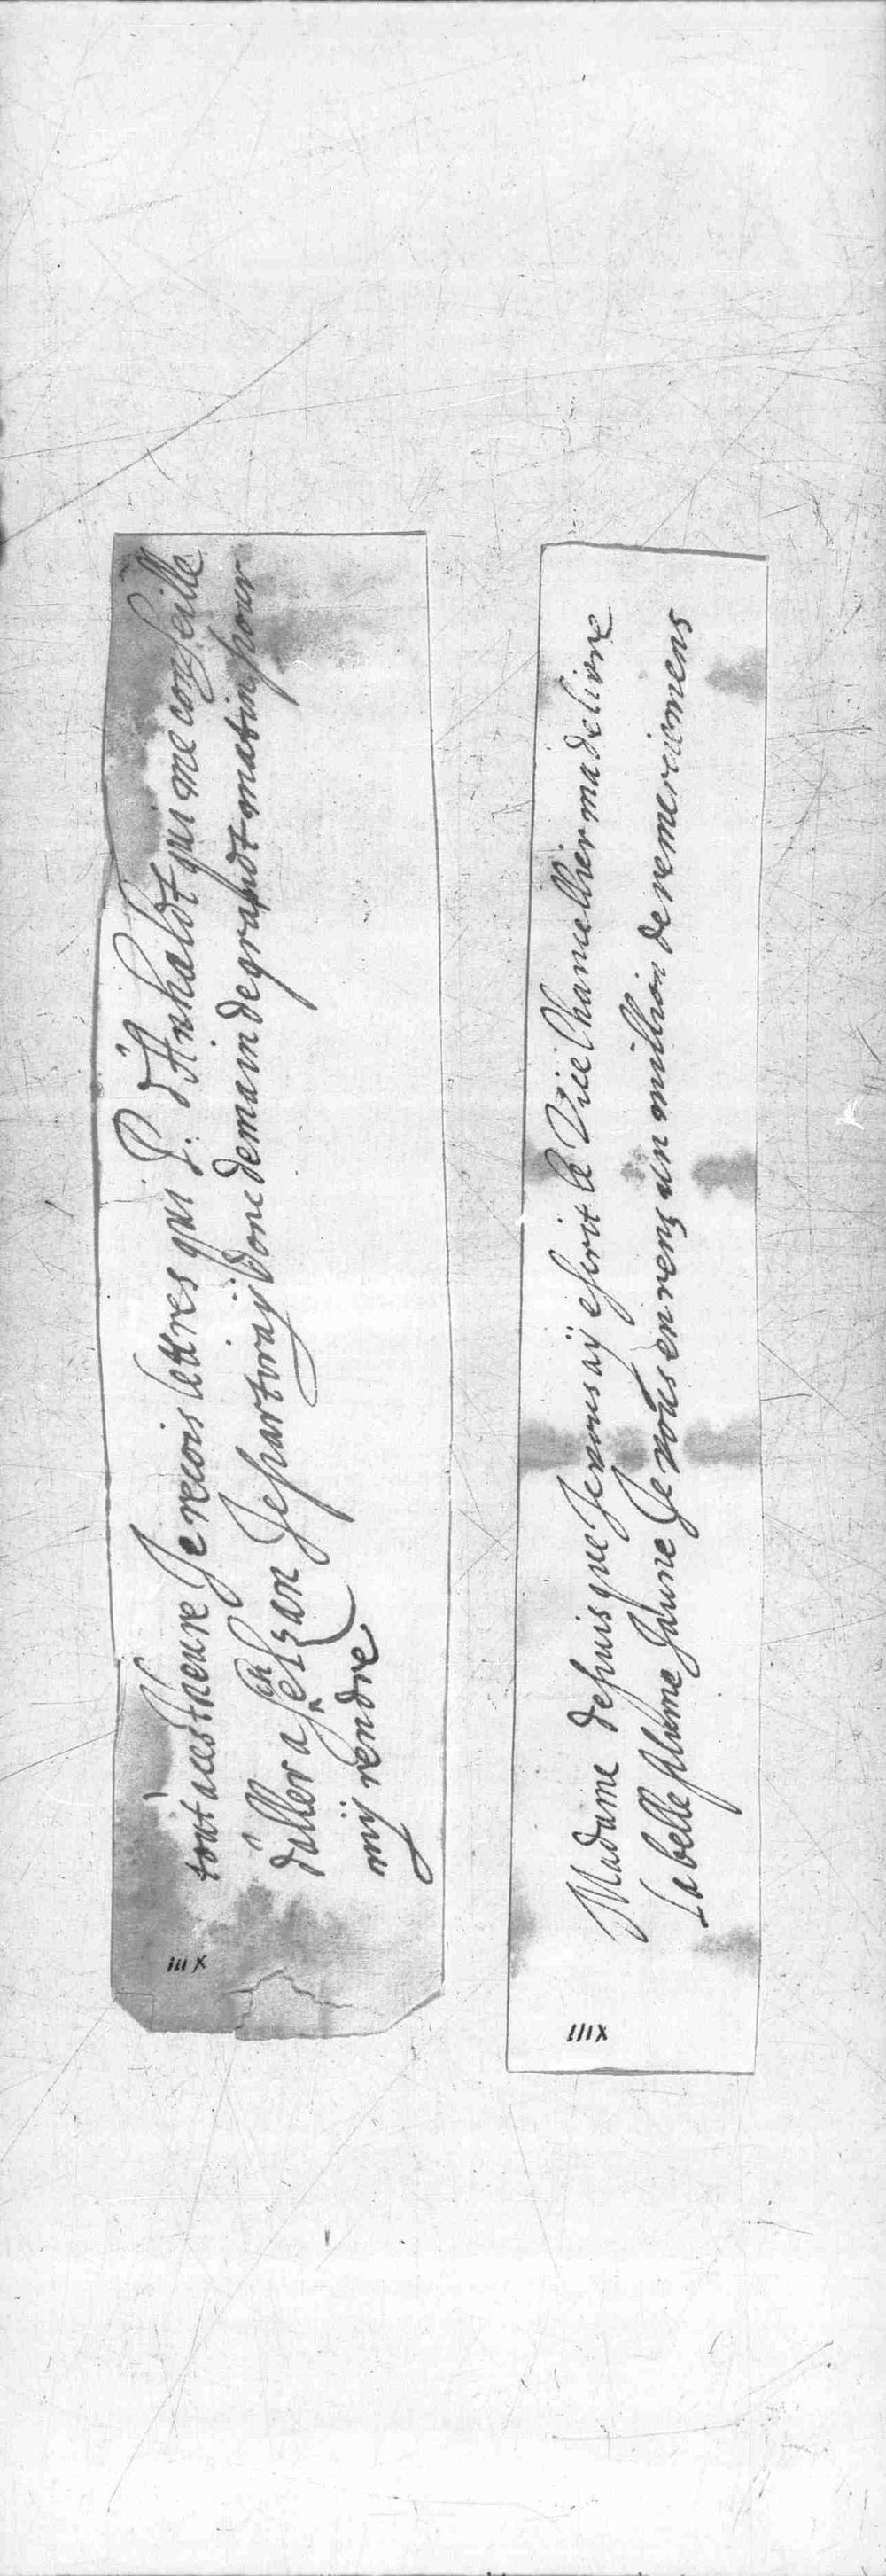 tout acestheure Je recois lettres qui P: d'Anhaldt qui me conseille
d'aller a Jehan Je partiray donc demain de grandt matin pour
mij rendre
III X
Madame depuis que Je vous aÿ escrit le Vice Chancellier ma delivre
La belle plume Jaune Je vous en renz un million de remerciemens
IIIX